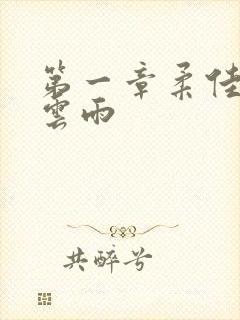 第一章柔佳
雲雨
共醉兮